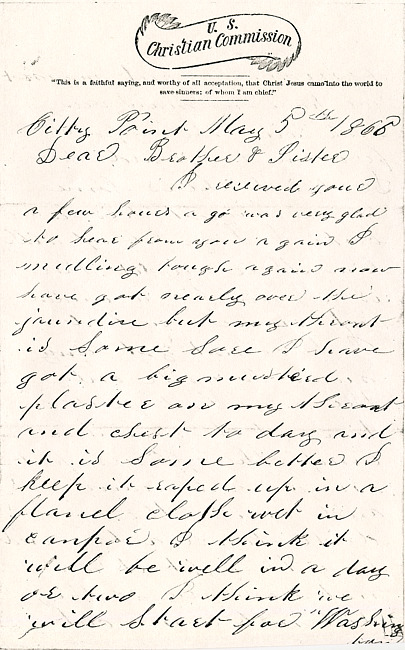 U. S.
Christian Commission
"This is a faithful saying, and worthy of all acceptation, that Christ Jesus came into the world to
save sinners; of whom I am chief."
Citty Point May 5th 1865
Dear Brother & Sister
I recieved yours
a few hours a go was very glad
to hear from you a gain I
midling tough again now
have got nearly over the
jaundise but my throat
is some sore I have
got a big musterd
plaster on my throat
and chest to day and
it is some better I
keep it raped up in a
flanel cloth wet in
canpor I think it
will be well in a day
or two I think we
will start for Washing
ton